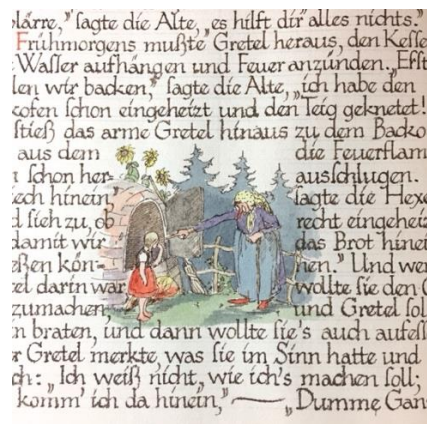 plärre," sagte die Alte, „es hilft dir alles nichts."
Frühmorgens mußte Gretel heraus, den Kesse
Wasser aufhängen und Feuer anzünden. „Erst
len wir backen," sagte die Alte, „ich habe den
kofen schon eingeheizt und den Teig geknetet!
stieß das arme Gretel hinaus zu dem Backo
aus dem die Feuerflam
n schon her- ausschlugen.
iech hinein," sagte die Hexe
d sieh zu, ob recht eingeheiz
damit wir das Brot hinei
eßen kön- nen." Und wen
tel darin war, wollte sie den O
zumachen, und Gretel sol
n braten, und dann wollte sie's auch aufess
r Gretel merkte, was sie im Sinn hatte und
ch: „Ich weiß nicht, wie ich's machen soll;
komm' ich da hinein," — „Dumme Gan